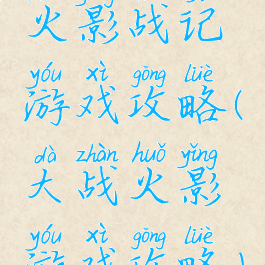 火影战记
yóu xì gōng lüè
游戏攻略(
dà zhàn huǒ yǐng
大战火影
yóu xì gōng lüè
游戏攻略)